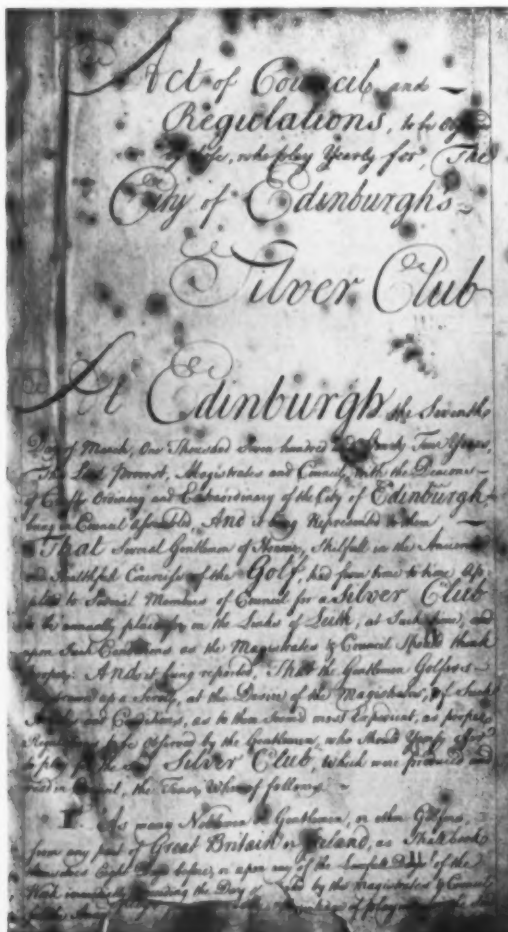 Act of Council and
Regulations, to be
by those, who play Yearly for, The
City of Edinburgh's
Silver Club
At Edinburgh the Seventh
Day of March, One Thousand Seven hundred and Fourty Four Years,
The Lord Provost, Magistrates and Council, with the Deacons
of Crafts, Ordinary and Extraordinary of the City of Edinburgh
being in Council Assembled, And it being Represented to them,
That Several Gentlemen of Honour, Skilfull in the Ancient
and Healthfull Exercise of the Golf, had from time to time Ap-
plied to Several Members of Council for a Silver Club
to be annually plaid for on the Links of Leith, at Such time, and
upon Such Conditions as the Magistrates & Council Should think
proper: And it being reported, That the Gentlemen Golfers
drawn up a Scroll, at the Desire of the Magistrates, of Such
Articles and Conditions, as to them Seemed most Expedient, as proper
Regulations to be observed by the Gentlemen, who Should Yearly offer
to play for the Silver Club, which were produced and
read in Council, the Tenor Whereof follows
I. As many Noblemen or Gentlemen, or other Golfers,
from any part of Great Britain or Ireland, as Shall book
themselves Eight Days before, or upon any of the Lawfull Days of the
Week immediately preceeding the Day by the Magistrates & Council
for the